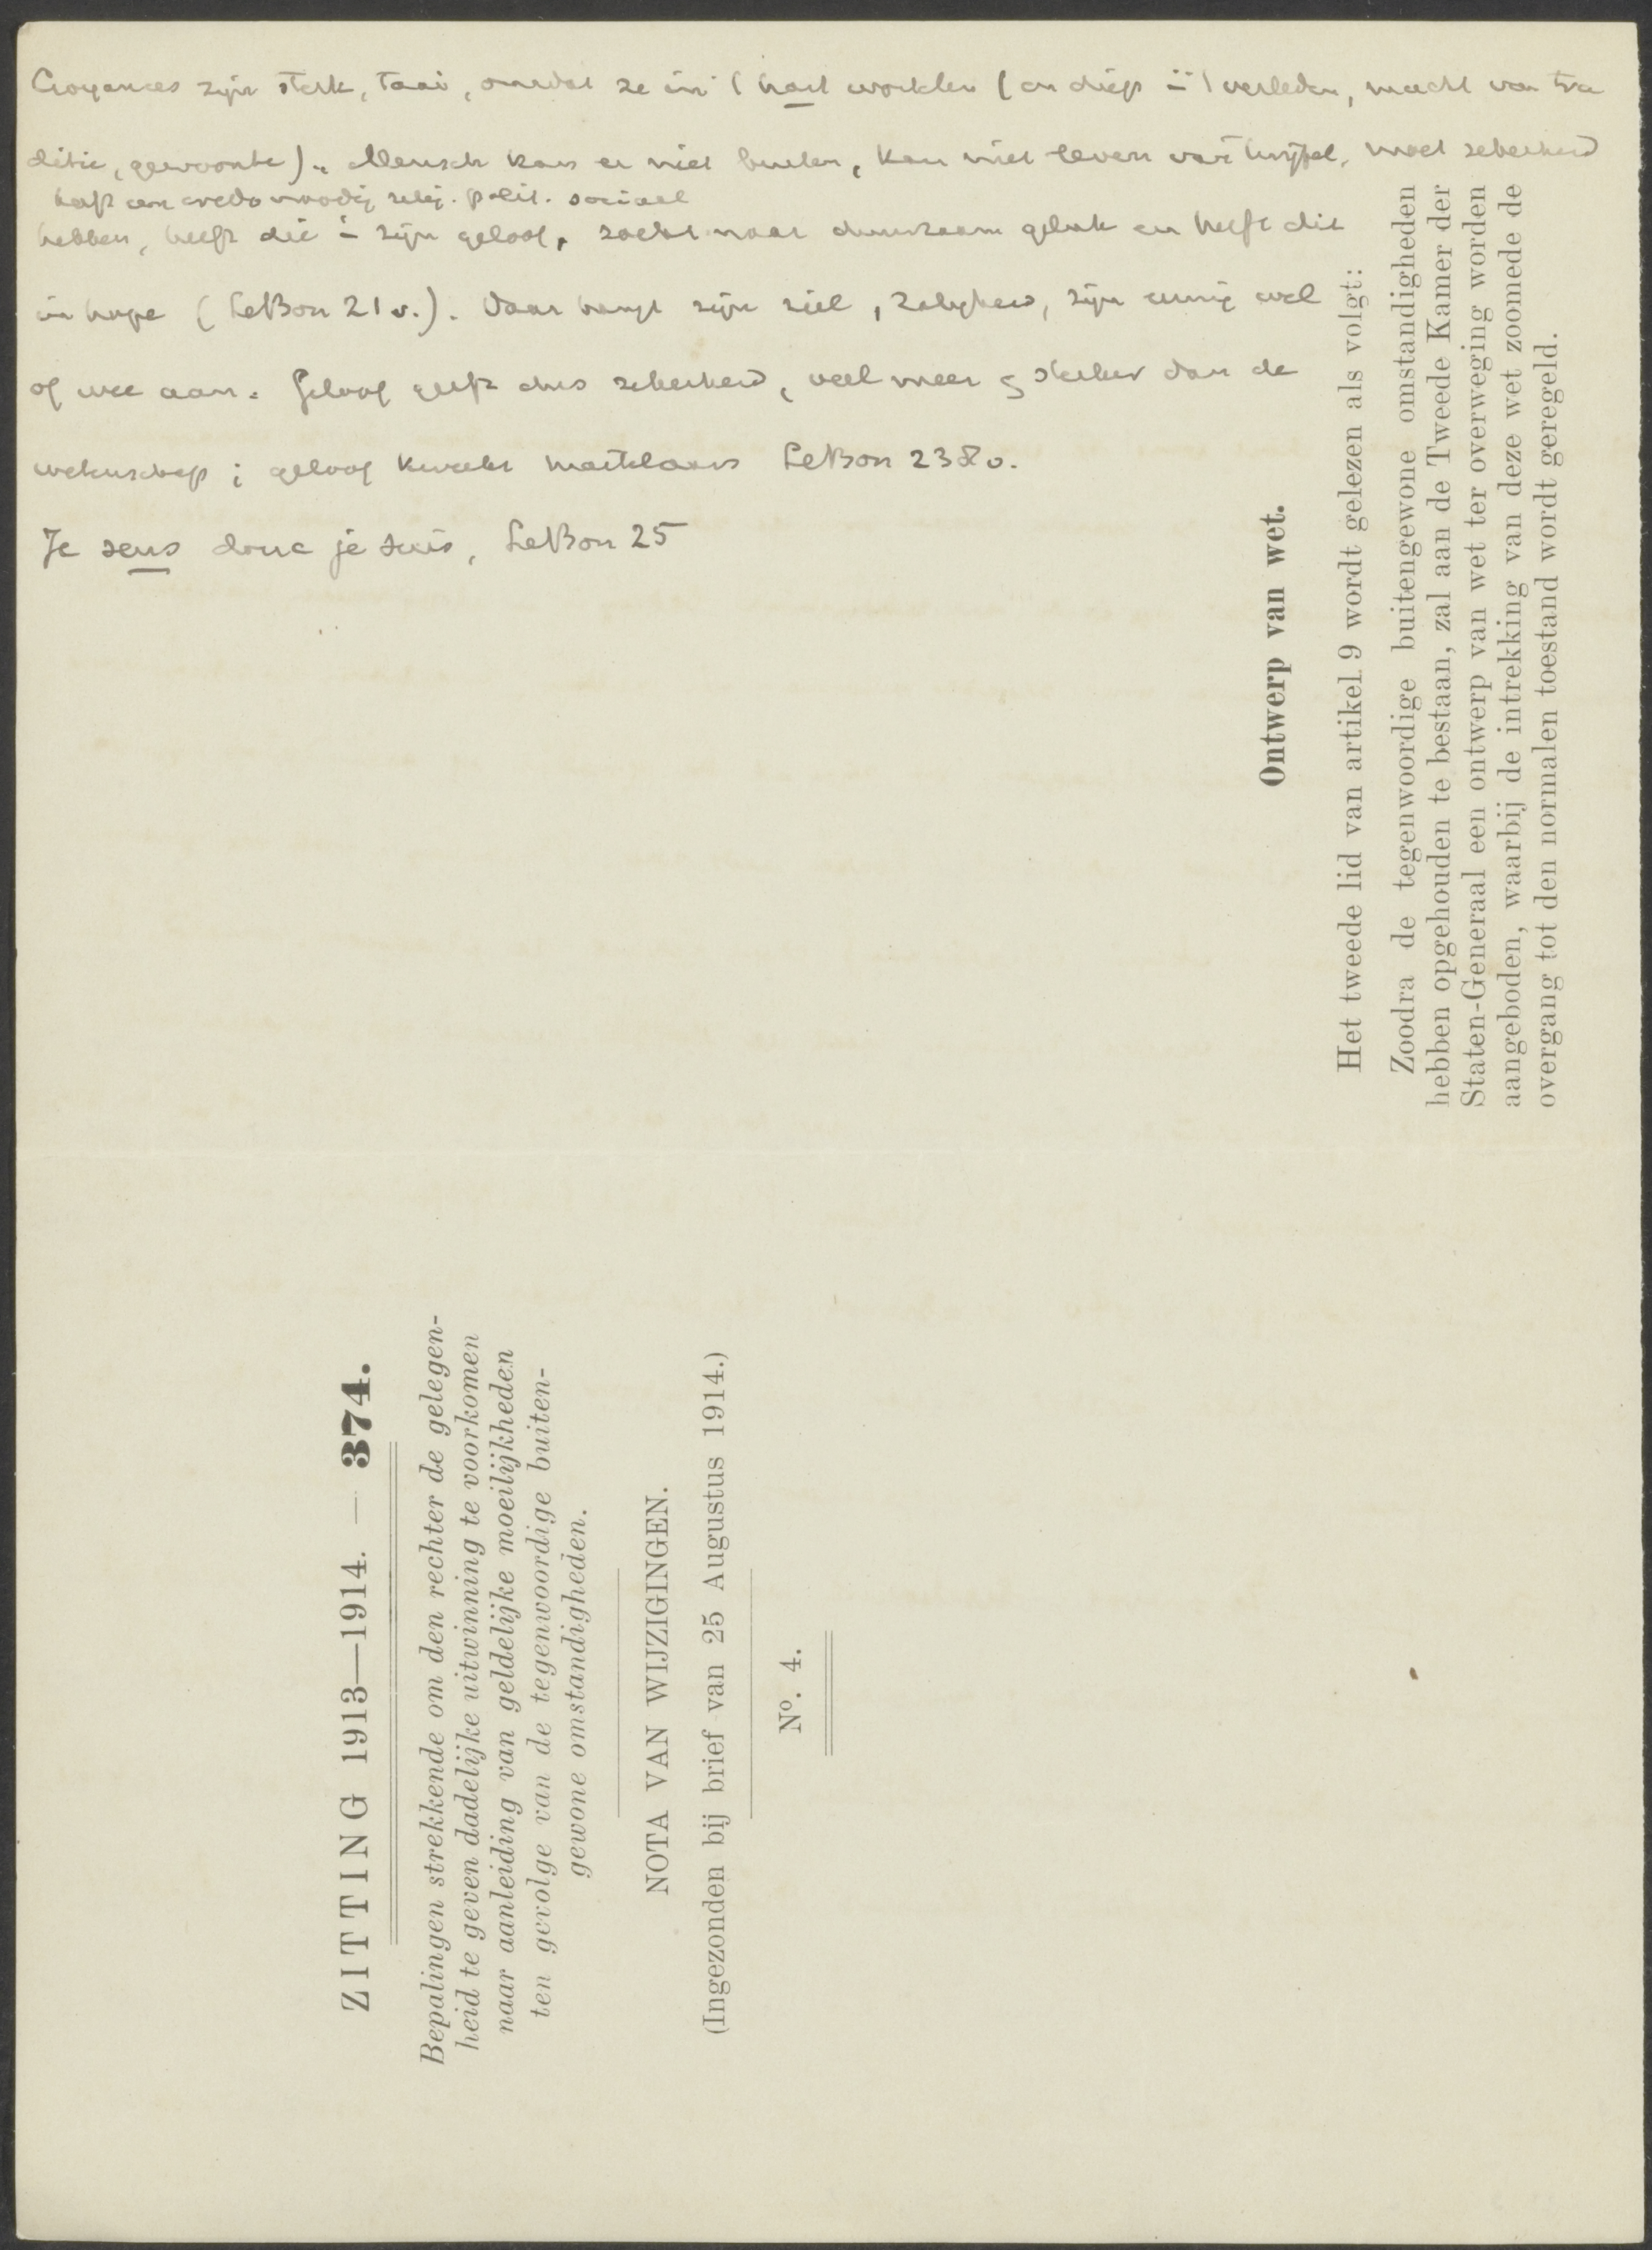 Croyances zijn sterk, taai, omdat ze in 't hart wortelen (en diep i 't verleden, macht van tra
ditie, gewoonte). Mensch kan er niet buiten, kan niet leven van twijfel, moet zekerheid
heeft een credo noodig relig. polit. sociaal
hebben, heeft die i zijn geloof, zoekt naar duurzaam geluk en heeft dit
in hope (LeBon 21 v.). Daar hangt zijn ziel, zaligheid, zijn eeuwig wel
of wee aan. Geloof geeft dus zekerheid, veel meer sterker dan de
wetenschap; geloof kweekt martelaars LeBon 238 v.
Je sens donc je suis, LeBon 25
Ontwerp van wet.
Het tweede lid van artikel 9 wordt gelezen als volgt:
Zoodra de tegenwoordige buitengewone omstandigheden
hebben opgehouden te bestaan, zal aan de Tweede Kamer der
Staten-Generaal een ontwerp van wet ter overweging worden
aangeboden, waarbij de intrekking van deze wet zoomede de
overgang tot den normalen toestand wordt geregeld.
ZITTING 1913—1914. — 374.
Bepalingen strekkende om den rechter de gelegen-
heid te geven dadelijke uitwinning te voorkomen
naar aanleiding van geldelijke moeilijkheden
ten gevolge van de tegenwoordige buiten-
gewone omstandigheden.
NOTA VAN WIJZIGINGEN.
(Ingezonden bij brief van 25 Augustus 1914.)
Nº. 4.